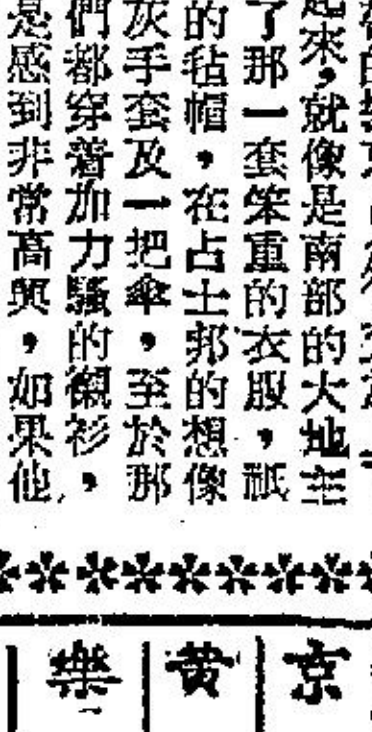 起來，就像是南部的大地主
了那一套笨重的衣服，祇
的毡帽，在占士邦的想像
灰手套及一把傘，至於那
們都穿着加力騷的襯衫，
是感到非常高興，如果他
京
黄
樂